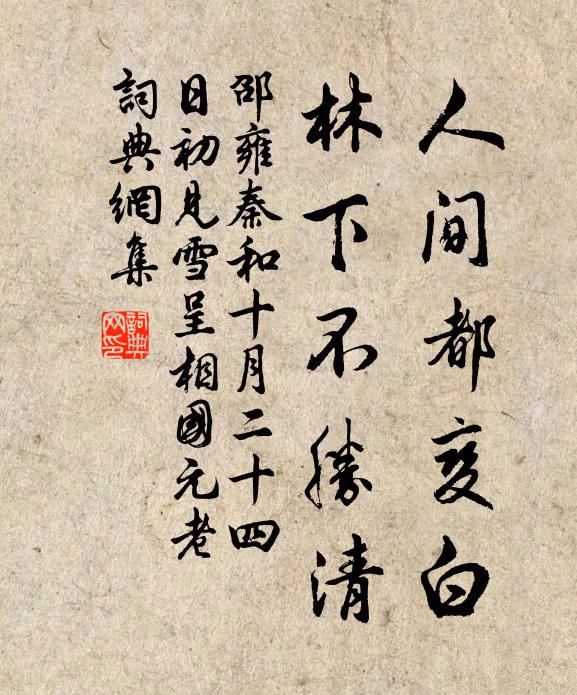 人間都變白
林下不勝清
邵雍秦和十月二十四
日初見雪呈相國元老
詞典網集
詞典
网印